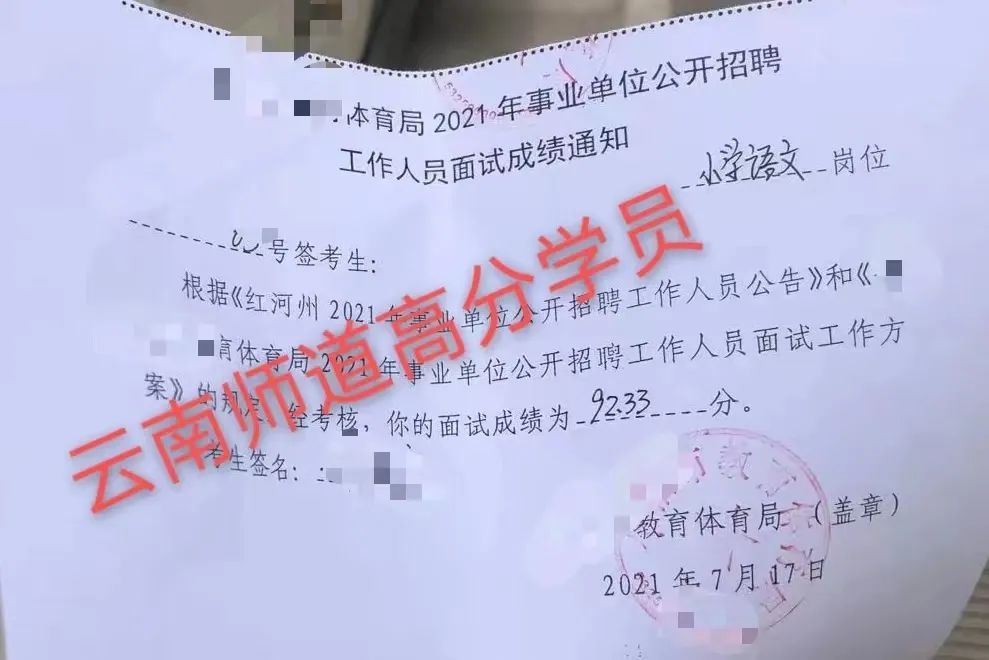 体育局2021年事业单位公开招聘
工作人员面试成绩通知
小学语文岗位
号签考生：
根据《红河州2021年事业单位公开招聘工作人员公告》和《
育体育局2021年事业单位公开招聘工作人员面试工作方
案》的规定，经考核，你的面试成绩为92.33分。
考生签名：
教育体育局（盖章）
2021年7月17日
云南师道高分学员